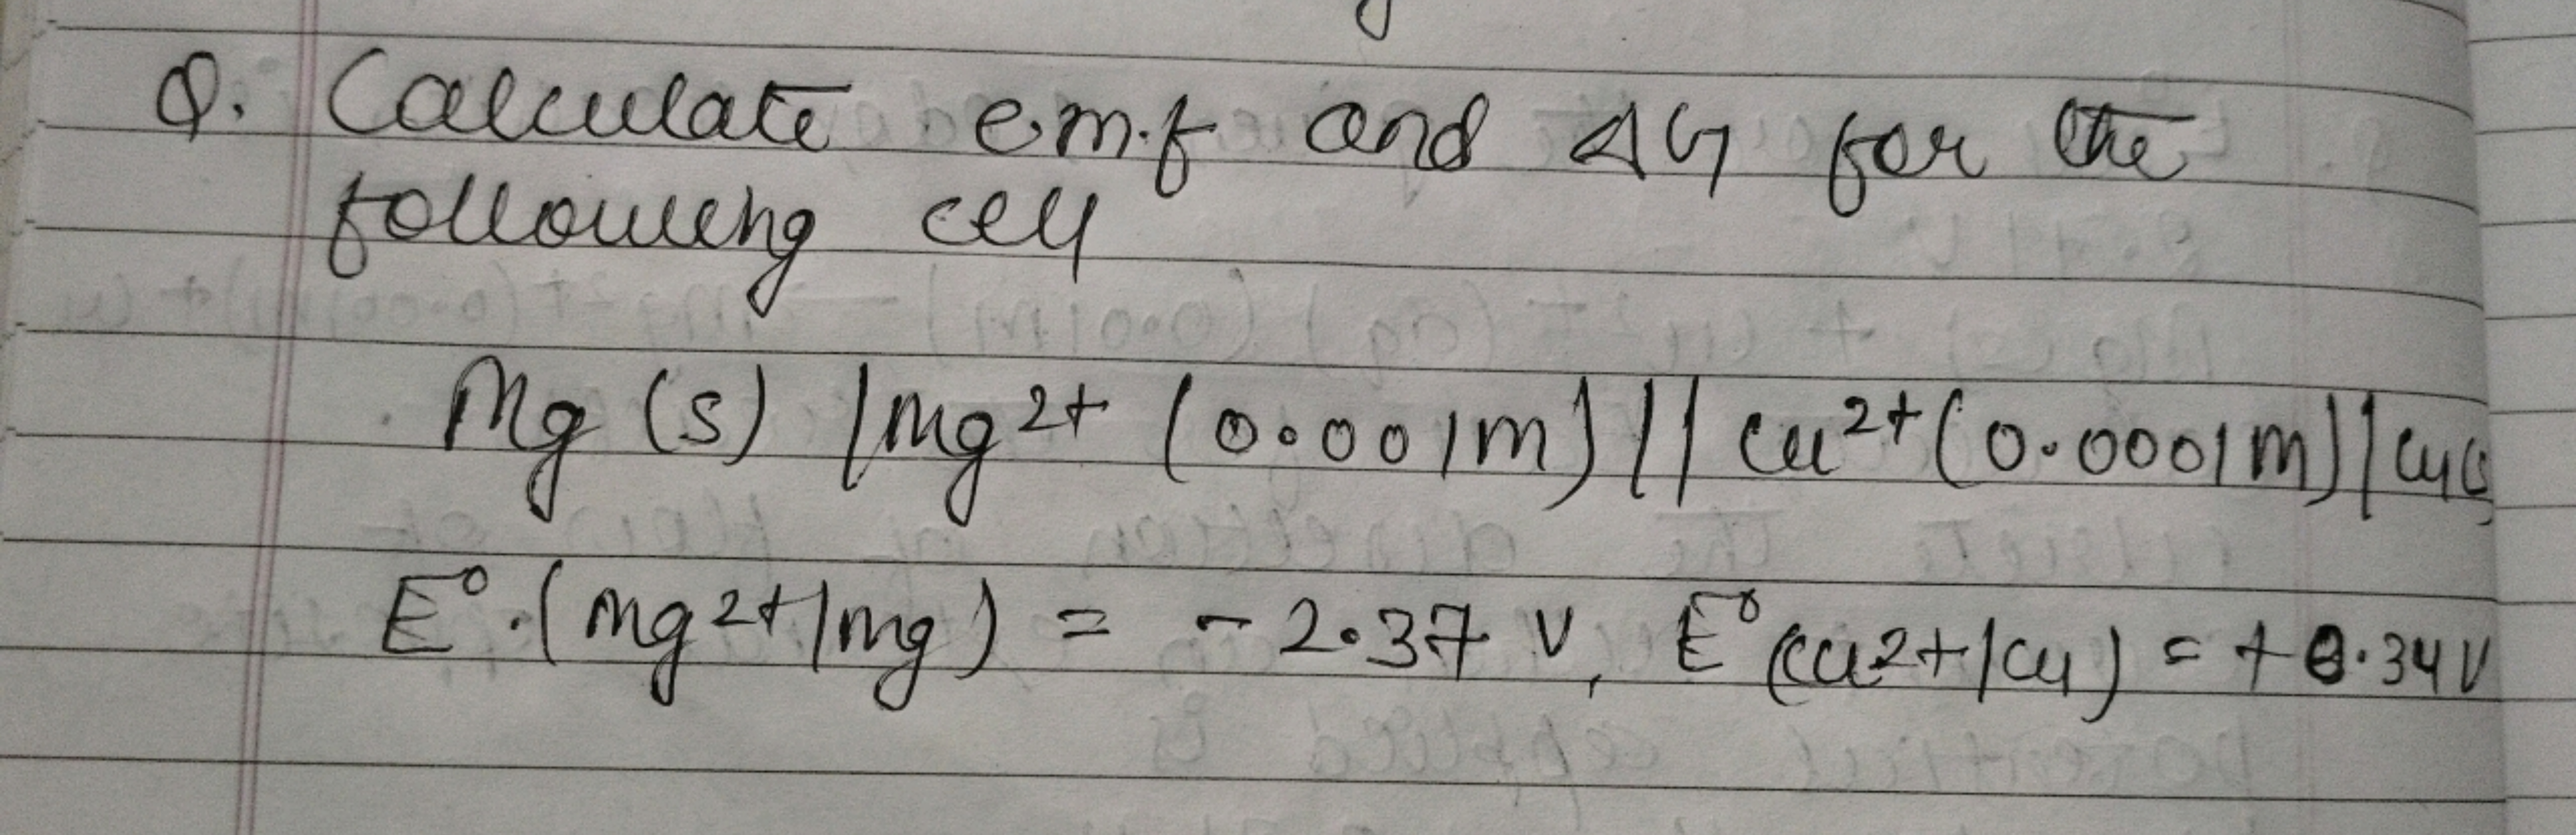 Q. Calculate e.m.f and ΔG for the
following cell
Mg (s) | mg2+ (0.001m) || Cu2+ (0.0001m) | Cu(s)
E°. (mg2+|mg) = - 2.37 V, E° (Cu2+|Cu) = +0.34V